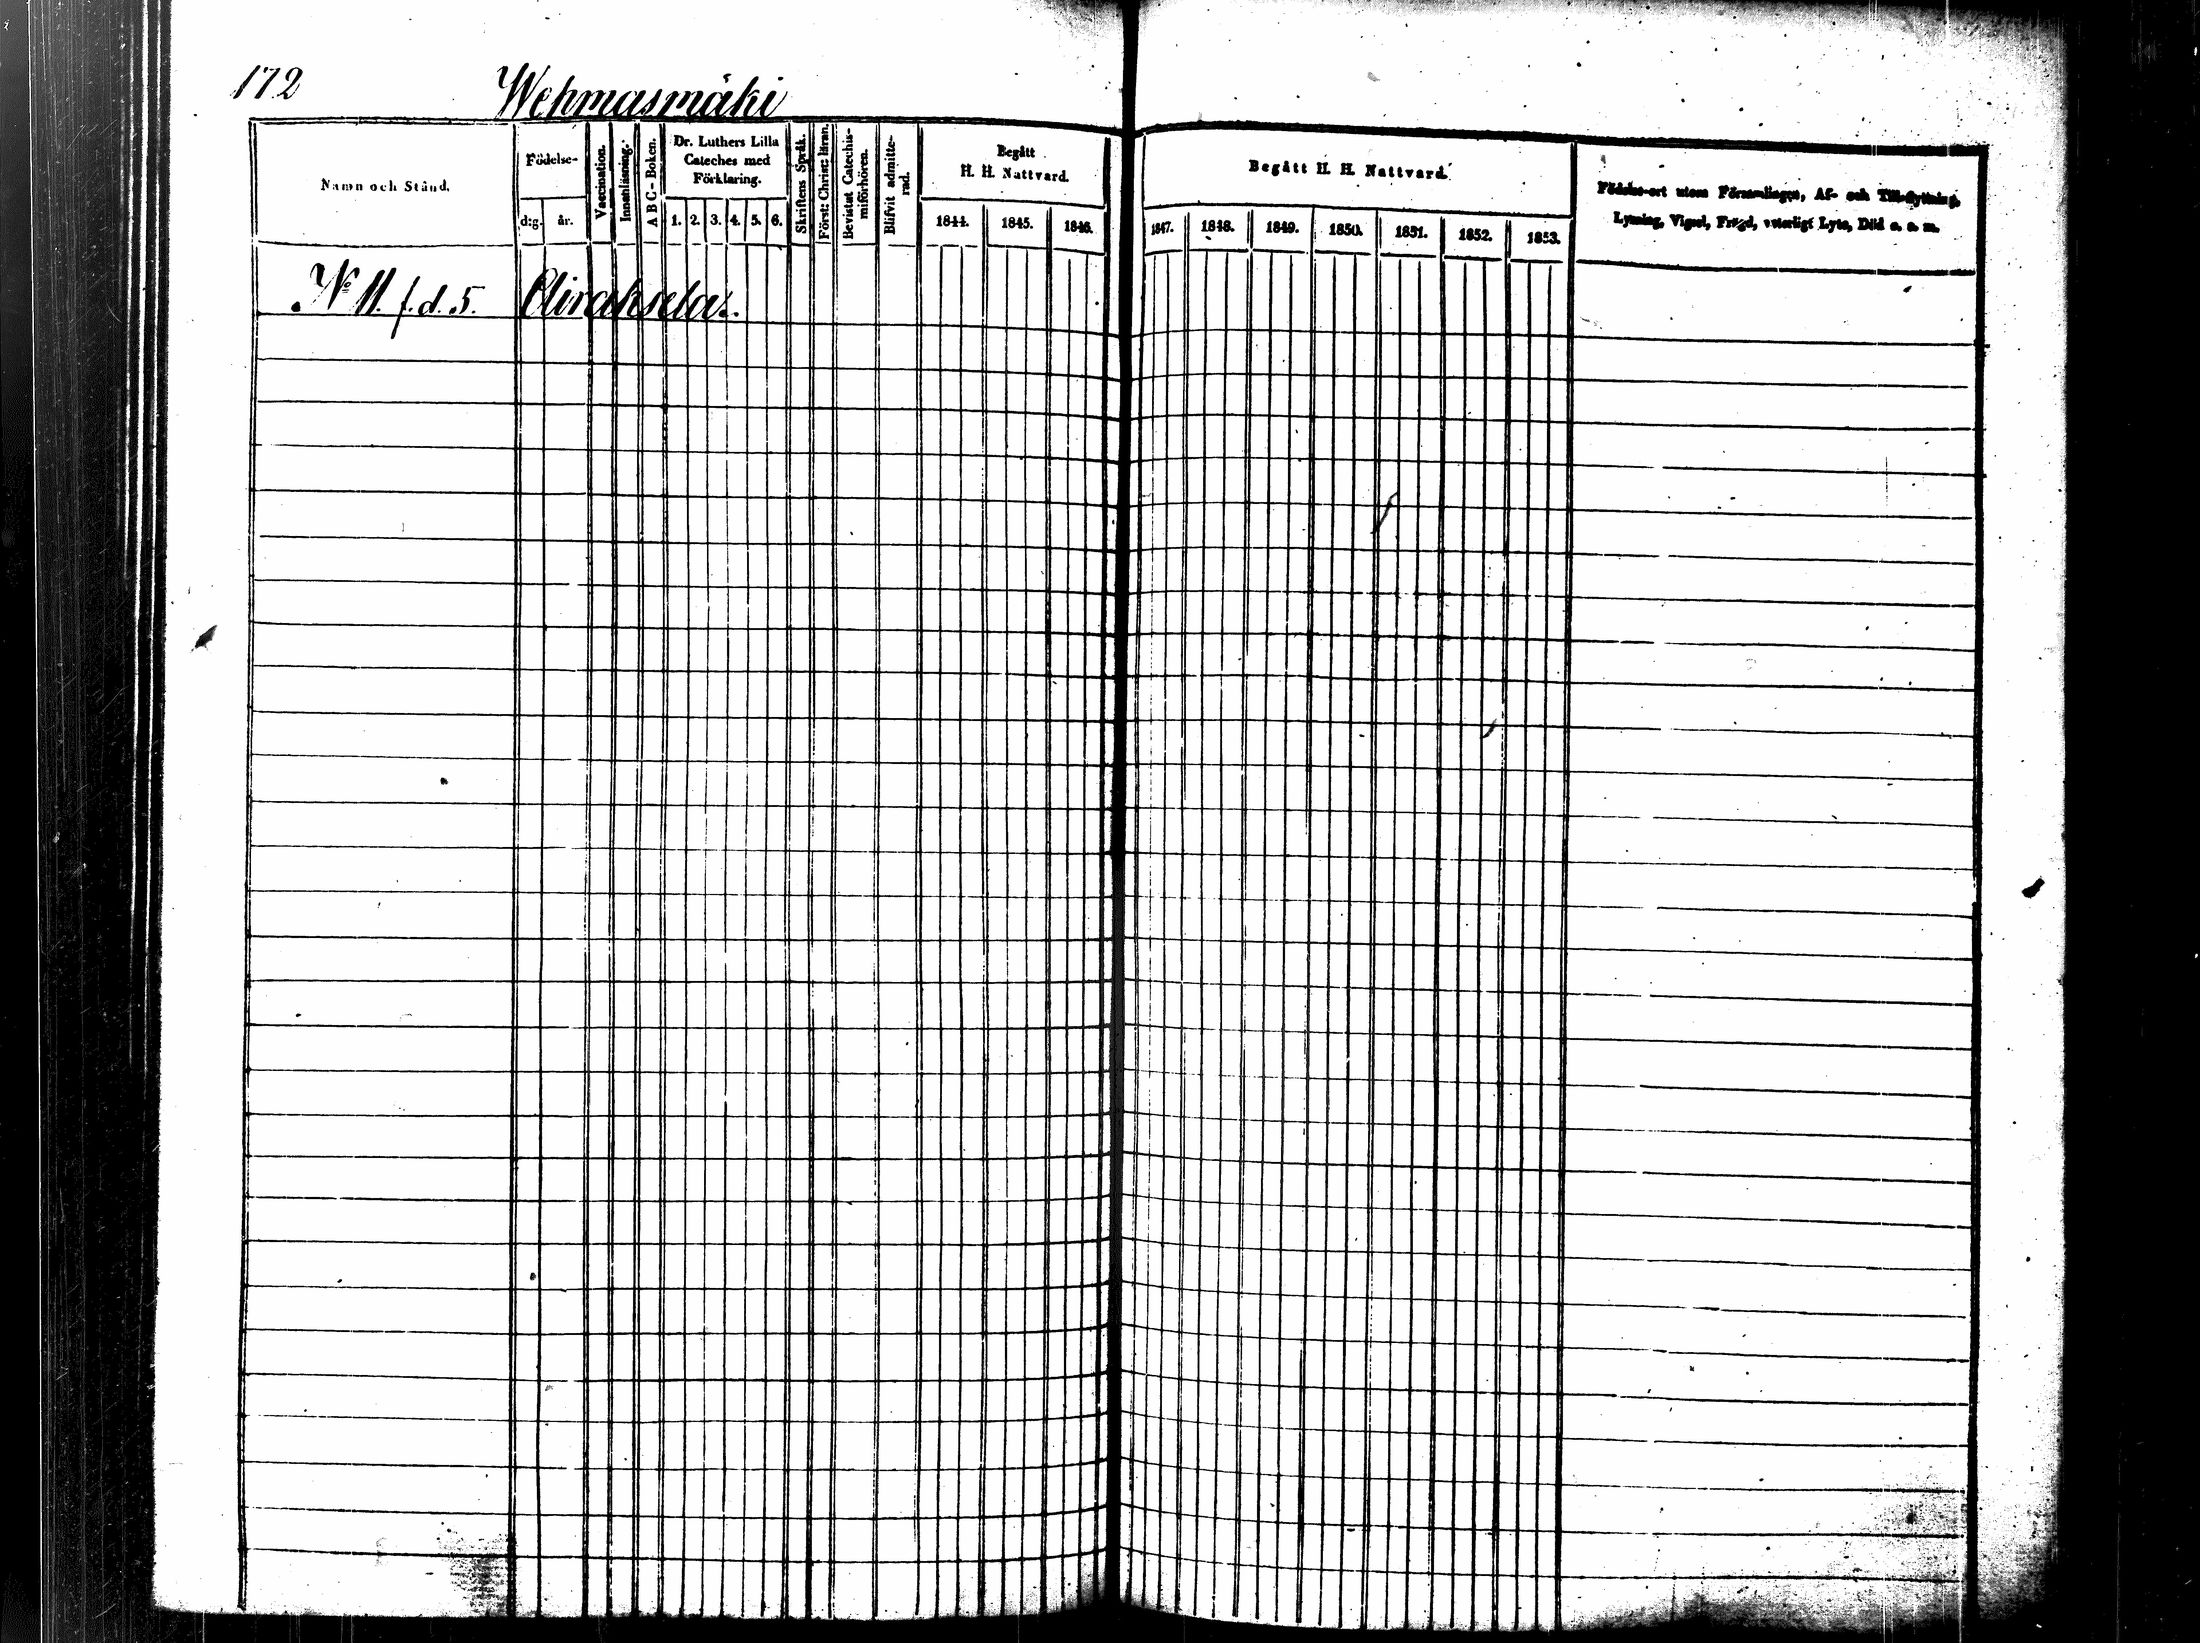 172
Wehmasmäki
Namn och Stånd.
Födelse-
d:g.
år.
Vaccination.
Innanläsning.
A B C - Boken.
Dr. Luthers Lilla
Cateches med
Förklaring.
1. 2. 3. 4. 5. 6.
Skriftens Språk.
Först: Christ: läran.
Bevistat Catechis-
miförhören.
Blifvit admitte-
rad.
Begått
H. H. Nattvard.
1844. 1845. 1846.
Begått H. H. Nattvard.
1847. 1848. 1849. 1850. 1851. 1852. 1853.
Födelse-ort utom Församlingen, Af- och Till-flyttning,
Lysning, Vigsel, Frägd, veterligt Lyte, Död o. s. m.
No 11. f.d. 5.